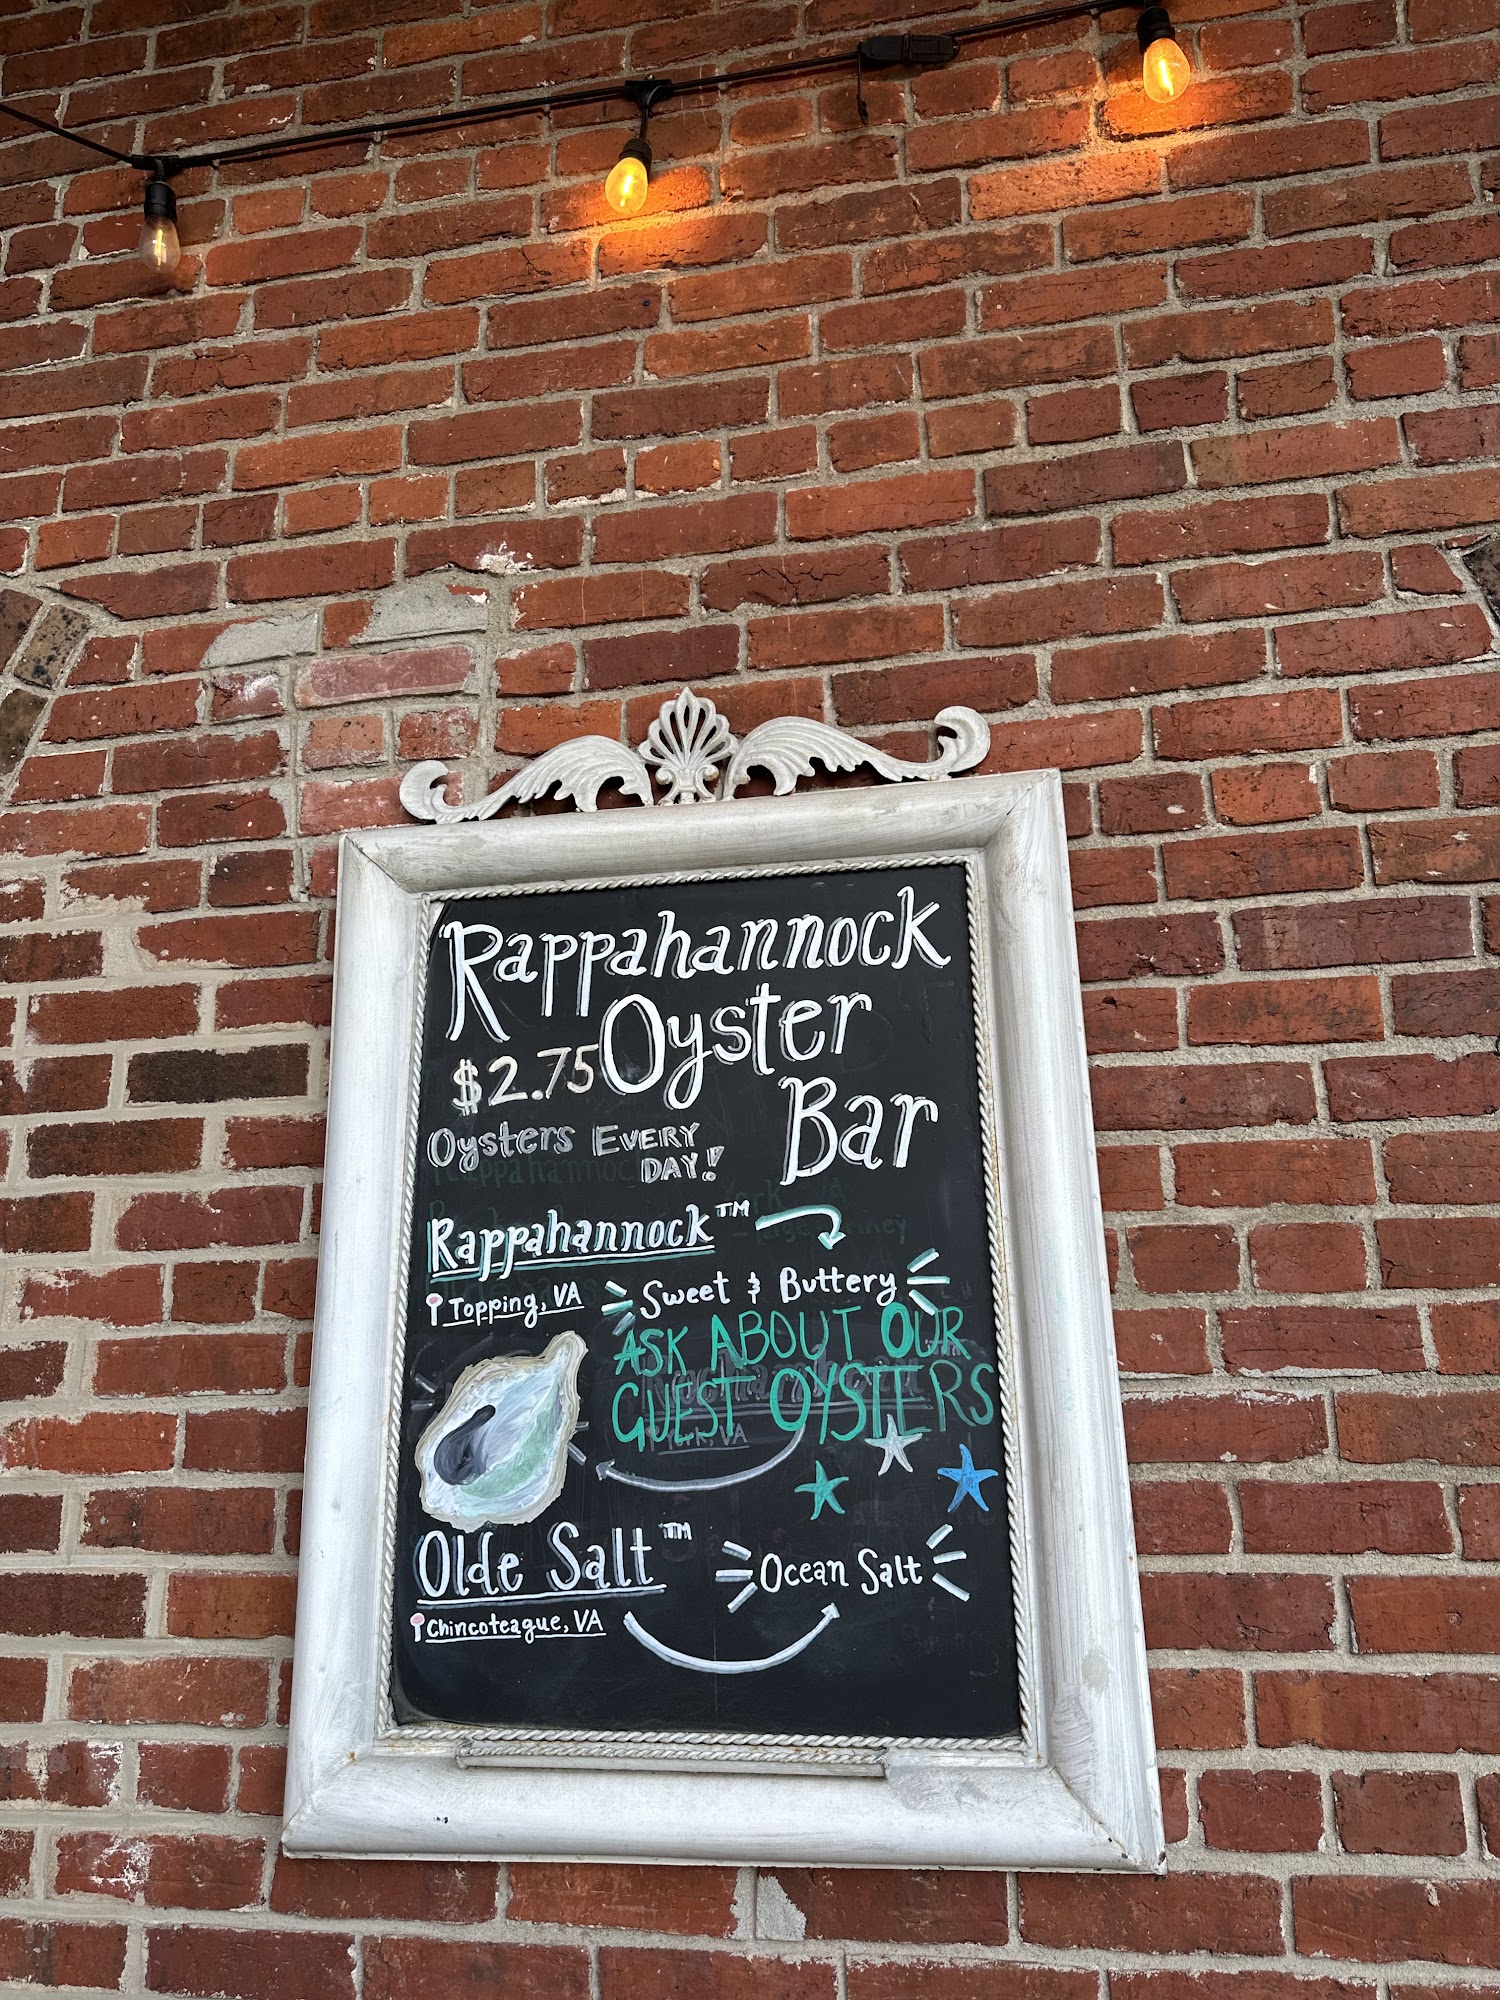 Rappahannock
Oyster
Bar
$2.75
Oysters EVERY
DAY!
Rappahannock™
Topping, VA
Sweet & Buttery
ASK ABOUT OUR
GUEST OYSTERS
Olde Salt™
Chincoteague, VA
Ocean Salt